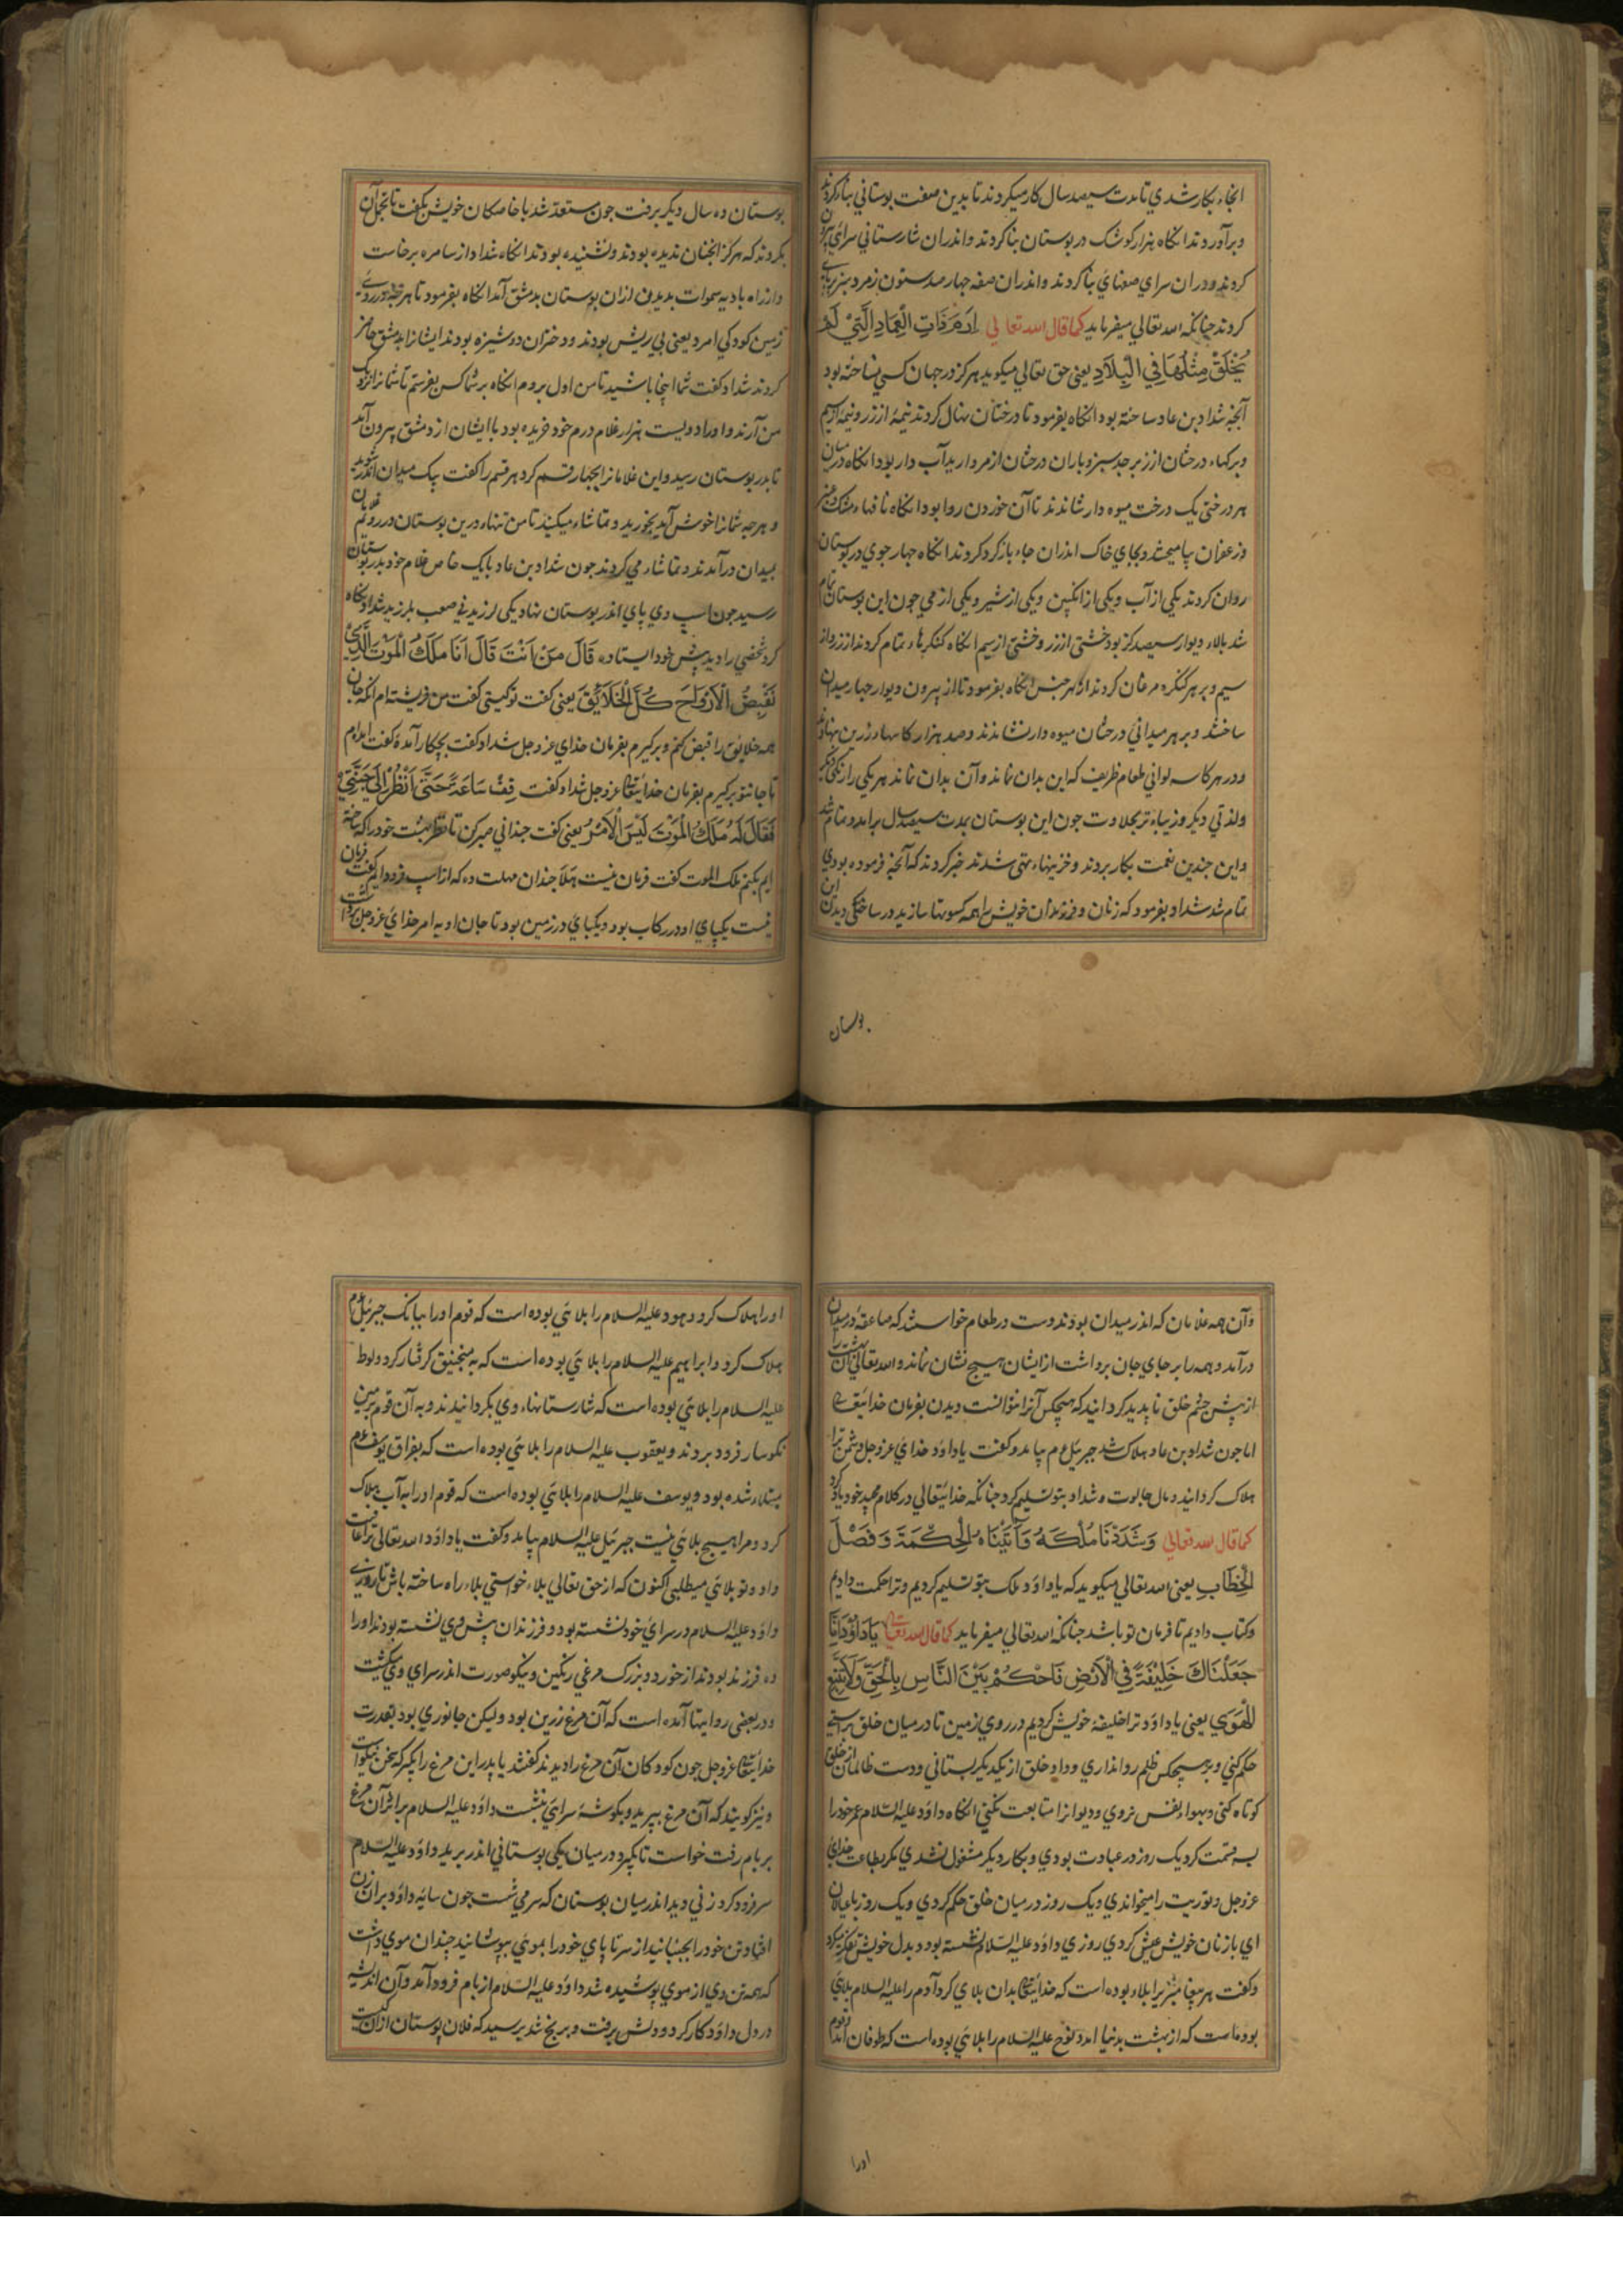 انجاء بكار شدي تا مدت سيصد سال كار ميكردند تا بدين صفت بوستاني بنا كردند
و برآوردند انكاه هزار كوشك در بوستان بنا كردند و اندران شارستاني سراي
كردند و دران سراي صفهاي بنا كردند و اندران صفه چهار صد ستون زمرد سبز
كردند جنانكه الله تعالي ميفرمايد كما قال الله تعالي اِرَمَ ذَاتِ الْعِمَادِ الَّتِيْ لَمْ
يُخْلَقْ مِثْلُهَا فِي الْبِلَادِ يعني حق تعالي ميكويد هركز در جهان كسي نساخته بود
آنجه شداد بن عاد ساخته بود انكاه بفرمود تا درختان نهال كردند نيمهٔ از زر و نيمهٔ از سيم
و بركهاء درختان از زبرجد سبز و باران درختان از مرواريد آب دار بود انكاه درميان
هر درختي يك درخت ميوه دار نشاندند تا آن خوردن روا بود انكاه نافهاء مشك و عنبر
و زعفران بياميختند و بجاي خاك اندران جاء باز كرد كردند انكاه جهار جوي در بوستان
روان كردند يكي از آب و يكي از انكبين و يكي از شير و يكي از مي جون اين بوستان تمام
شد بالاء ديوار سيصد كز بود خشتي از زر و خشتي از سيم انكاه كنكرهاء تمام كردند از زر و از
سيم و بر هر كنكره مرغان كردند از هر جنس انكاه بفرمود تا از بيرون ديوار جهار ميدان
ساختند و بر هر ميداني درختان ميوه دار نشاندند و صد هزار كاسهاء زرين نهادند
و در هر كاسه لواني طعام ظريف كه اين بدان نماند و آن بدان نماند هر يكي را رنكي ديكر
و لذتي ديكر و زيباء تر بحلاوت جون اين بوستان بمدت سيصد سال برامد و تمام شد
و اين جندين نعمت بكار بردند و خزينهاء تهي شدند خبر كردند كه آنجه فرموده بودي
تمام شد شداد بفرمود كه زنان و فرزندان خويش را همه كسوتها سازيد در ساختكي ديدن اين
بوستان
بوستان ده سال ديكر برفت جون مستعد شد با خاصكان خويش بكفت تا تجمل آن
بكردند كه هركز انجنان نديده بودند و نشنيده بودند انكاه شداد از سامره برخاست
و از راه باديه سموات بديدن ازان بوستان بدمشق آمد انكاه بفرمود تا هرجه در روي
زمين كودكي امرد يعني بي ريش بودند و دختران دوشيزه بودند ايشانرا بدمشق حاضر
كردند شداد كفت شما اينجا باشيد تا من اول بروم انكاه بر شما كس بفرستم تا شما را نزديك
من آرند و او را دويست هزار غلام درم خود خريده بود با ايشان از دمشق بيرون آمد
تا بدر بوستان رسيد و اين غلامانرا بجهار قسم كرد هر قسم را كفت بيك ميدان اندر شويد
و هرجه شما را خوش آيد بخوريد و تماشاء ميكنيد تا من تنهاء درين بوستان در روم غلامان
بميدان درآمدند و تماشاء مي كردند جون شداد بن عاد با يك خاص غلام خود بدر بوستان
رسيد جون اسپ وي پاي اندر بوستان نهاد يكي لرزيدني صعب بلرزيد شداد نكاه
كرد شخصي را ديد پيش خود ايستاده قَالَ مَنْ اَنْتَ قَالَ اَنَا مَلَكُ الْمَوْتِ الَّذِيْ
نَقْبِضُ الْاَرْوَاحَ كُلَّ الْخَلَايِقَ يعني كفت تو كيستي كفت من فريشته ام انكه جان
همه خلايق را قبض كنم و بركيرم بفرمان خداي عز و جل شداد كفت بجكار آمدهٔ كفت امدم
تا جانتو بركيرم بفرمان خدايتعالي عز و جل شداد كفت قِفْ سَاعَةً حَتَّى اَنْظُرْ اِلَى جَنَّتِي
فَقَالَ لَهُ مَلَكُ الْمَوْتَ لَيْسَ الْاَمْرُ يعني كفت جنداني صبر كن تا نظر بهشت خود را كه ساخته
ايم بكنم ملك الموت كفت فرمان نيست هلا جندان مهلت ده كه از اسپ فرود ايم كفت فرمان
نيست يكپاي او در ركاب بود و يكپاي در زمين بود تا جان او به امر خداي عز و جل برداشت
و آن همه غلامان كه اندر ميدان بودند دست در طعام خواستند كه صاعقه در ميدان
درآمد و همه را بر جاي جان برداشت از ايشان هيچ نشان نماند و الله تعالي آن بهشت را
از پيش چشم خلق ناپديد كردانيد كه هيچكس آنرا نتوانست ديدن بفرمان خدايتعالي
اما جون شداد بن عاد هلاك شد جبرئيل عم بيامد و كفت يا داود خداي عز و جل دشمن ترا
هلاك كردانيد و مال جالوت و شداد بتو تسليم كرد جنانكه خدايتعالي در كلام مجيد خود ياد كرد
كما قال الله تعالي وَشَدَدْنَا مُلْكَهُ وَآتَيْنَاهُ الْحِكْمَةَ وَفَصْلَ
الْخِطَابِ يعني الله تعالي ميكويد كه يا داود ملك بتو تسليم كرديم و ترا حكمت داديم
و كتاب داديم تا فرمان تو باشد جنانكه الله تعالي ميفرمايد كما قال الله تعالي يَا دَاوُدُ اِنَّا
جَعَلْنَاكَ خَلِيْفَةً فِي الْاَرْضِ فَاحْكُمْ بَيْنَ النَّاسِ بِالْحَقِّ وَلَا تَتَّبِعِ
الْهَوَي يعني يا داود ترا خليفهٔ خويش كرديم در روي زمين تا در ميان خلق براستي
حكم كني و بر هيچكس ظلم روا نداري و داد خلق از يكديكر بستاني و دست ظالمان از خلق
كوتاه كني و بهواء نفس نروي و ديو انرا متابعت نكني انكاه داود عليه السلام عمر خود را
بسه قسمت كرد يك روز در عبادت بودي و بكار ديكر مشغول نشدي مكر بطاعت خداي
عز و جل و توريت را ميخواندي و يك روز در ميان خلق حكم كردي و يك روز با عيالان
اي با زنان خويش عيش كردي روزي داود عليه السلام نشسته بود و بدل خويش تفكر ميكرد
و كفت هر پيغامبريرا بلاء بوده است كه خدايتعالي بدان بلاي كرد آدم را عليه السلام بلاي
بوده است كه از بهشت بدنيا امد و نوح عليه السلام را بلائي بوده است كه طوفان آمد و قوم
اورا
اورا هلاك كرد و هود عليه السلام را بلائي بوده است كه قوم اورا ببانك جبرئيل عم
هلاك كرد و ابراهيم عليه السلام را بلائي بوده است كه به منجنيق كرفتار كرد و لوط
عليه السلام را بلائي بوده است كه شارستانهاء وي بكردانيدند و به آن قوم بزمين
نكوسار فرود بردند و يعقوب عليه السلام را بلائي بوده است كه بفراق يوسف عم
مبتلاء شده بود و يوسف عليه السلام را بلائي بوده است كه قوم اورا به آب هلاك
كرد و مرا هيچ بلائي نيست جبرئيل عليه السلام بيامد و كفت يا داود الله تعالي ترا عافيت
داد و تو بلائي ميطلبي اكنون كه از حق تعالي بلاء خواستي بلاء راه ساخته باش تا روزي
داود عليه السلام در سراي خود نشسته بود و فرزندان پيش وي نشسته بودند اورا
ده فرزند بودند از خورد و بزرك مرغي رنكين و نيكو صورت اندر سراي وي بكشت
و در بعضي روايتها آمده است كه آن مرغ زرين بود وليكن جانوري بود بقدرت
خدايتعالي عز و جل جون كودكان آن مرغ را ديدند كفتند يا پدر اين مرغ را بكير كه سخن نيكوست
و نيز كويند كه آن مرغ بپريد و بكوشهٔ سراي بنشست داود عليه السلام بر اثر آن مرغ
بر بام رفت خواست تا بكيرد در ميان يكي بوستاني اندر پريد داود عليه السلام
سر فرود كرد زني ديد اندر ميان بوستان كه سر مي شست جون سايه داود بر آن زن
افتاد تن خود را بجنبانيد از سر تا پاي خود را بموئي بپوشانيد چندان موي داشت
كه همه تن وي از موي پوشيده شد داود عليه السلام از بام فرود آمد و آن انديشه
در دل داود كار كرد و دلش برفت و برنج شد پرسيد كه فلان بوستان ازان كيست